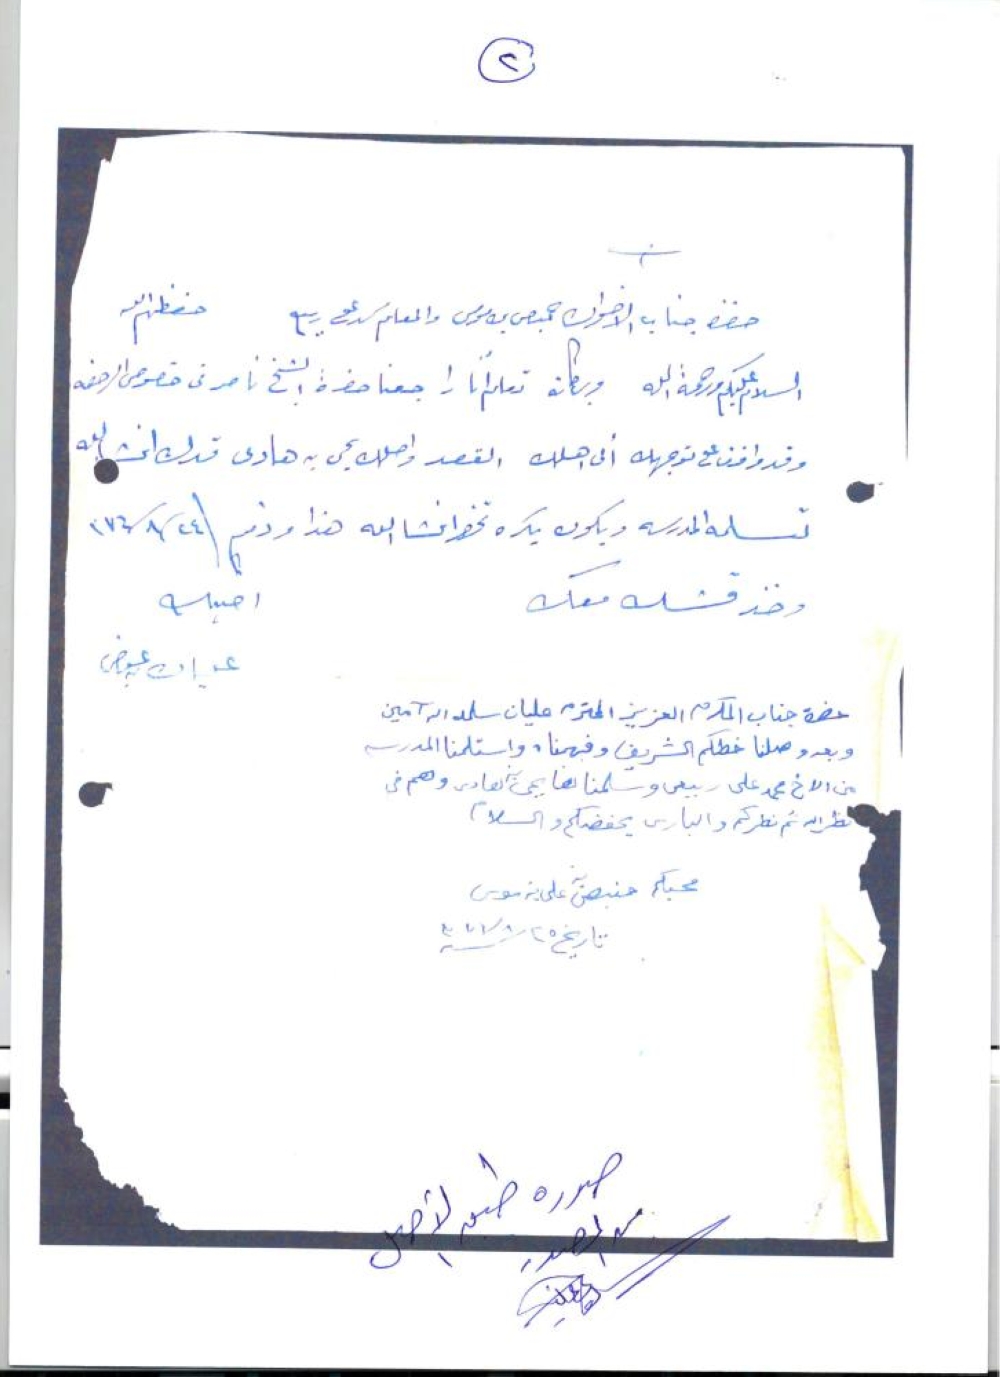 ٢
حضرة جناب الاخوان حنبص بن موسى والمعلم علي ربيع حفظهم الله
السلام عليكم ورحمة الله وبركاته تعلم أنا راجعنا حضرة الشيخ ناصر في خصوص الرخصه
وقد وافق على توجهك الى اهلك القصد واصلك يحي بن هادى قدك انشا لله
تسلمه المدرسه ويكون بكره تخطر انشا الله هذا ودمتم ٢٤/٨/
وخذ قشك معك اخيك
عليان عوض
حضرة جناب المكرم العزيز المحترم عليان سلمه الله آمين
وبعد وصلنا خطكم الشريف وفهمناه واستلمنا المدرسه
من الاخ محمد علي ربيعي وسلمناها يحي الهادى وهم في
نظر الله ثم نظركم والبارى يحفضكم والسلام
محبكم حنبص بن علي بن موسى
تاريخ ٢٥/٨/
صوره طبق الأصل